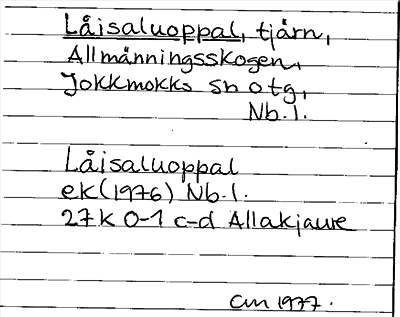 Låisaluoppal, tjärn,
Allmänningsskogen,
Jokkmokks sn o tg,
Nb. l.
Låisaluoppal
ek (1976) Nb. l.
27 K 0-1 c-d Allakjaure
CM 1977.